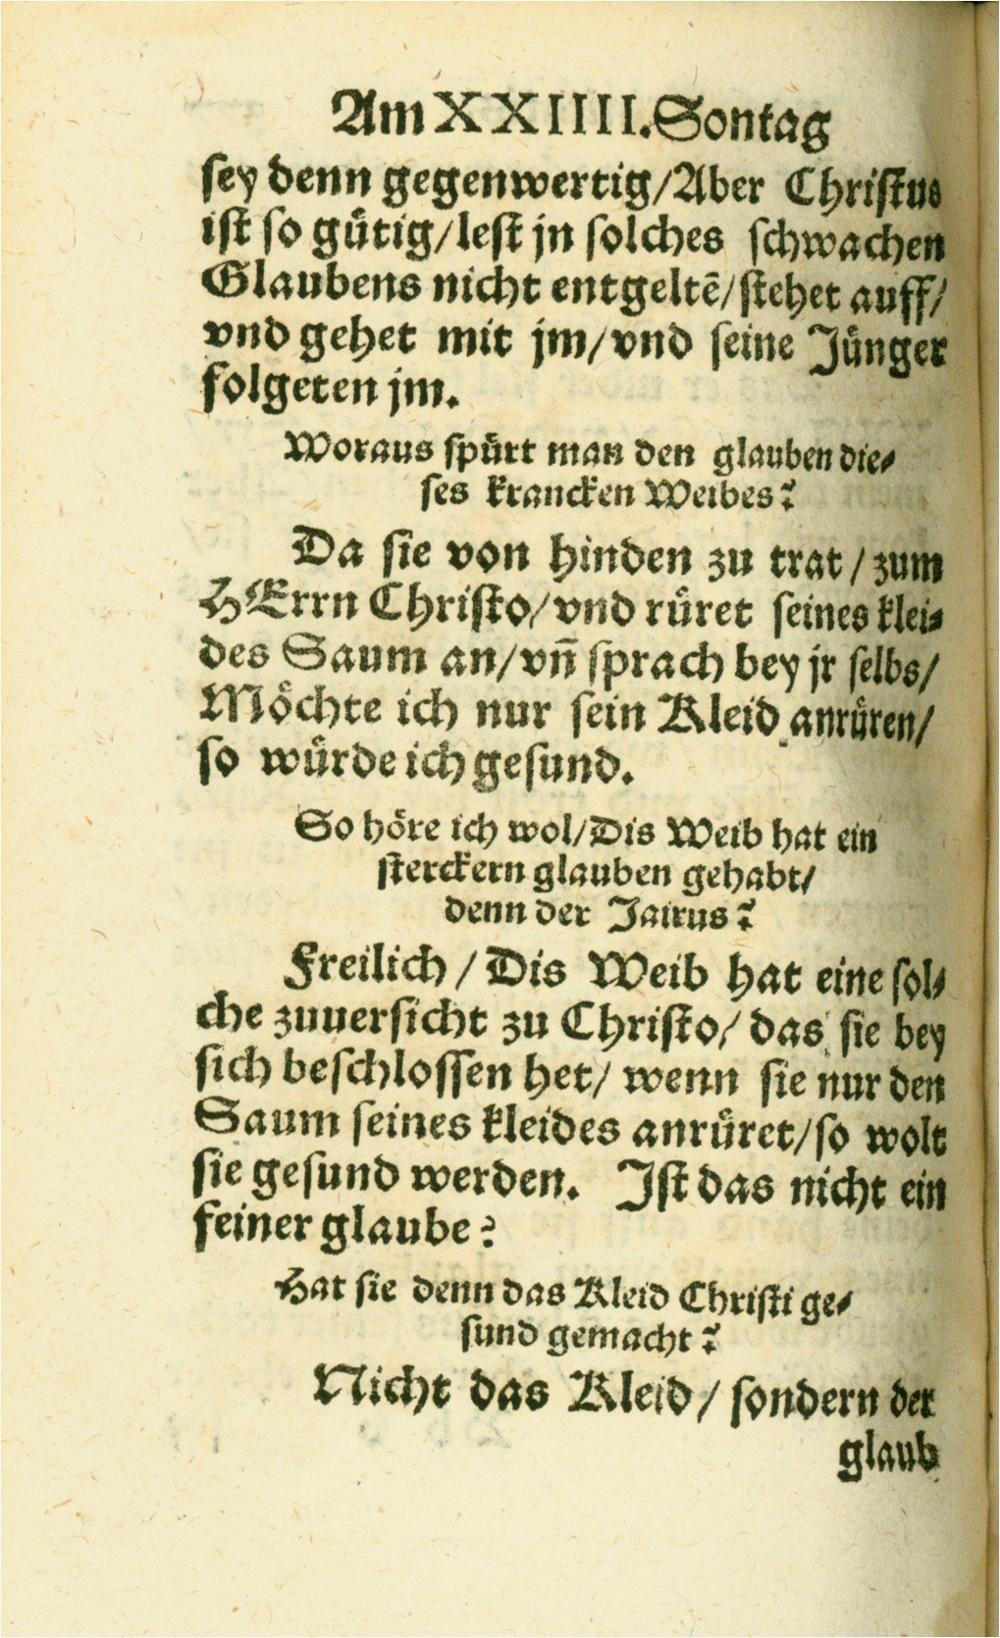 Am XXIIII. Sontag
sey denn gegenwertig/Aber Christus
ist so gůtig/lest jn solches schwachen
Glaubens nicht entgeltē/stehet auff/
vnd gehet mit jm/vnd seine Jůnger
folgeten jm.
Woraus spůrt man den glauben die-
ses krancken Weibes?
Da sie von hinden zu trat/zum
HErrn Christo/vnd růret seines klei-
des Saum an/vñ sprach bey jr selbs/
Möchte ich nur sein Kleid anrůren/
so wůrde ich gesund.
So höre ich wol/Dis Weib hat ein
sterckern glauben gehabt/
denn der Jairus?
Freilich/Dis Weib hat eine sol-
che zuuersicht zu Christo/das sie bey
sich beschlossen het/wenn sie nur den
Saum seines kleides anrůret/so wolt
sie gesund werden. Jst das nicht ein
feiner glaube?
Hat sie denn das Kleid Christi ge-
sund gemacht?
Nicht das Kleid/sondern der
glaub